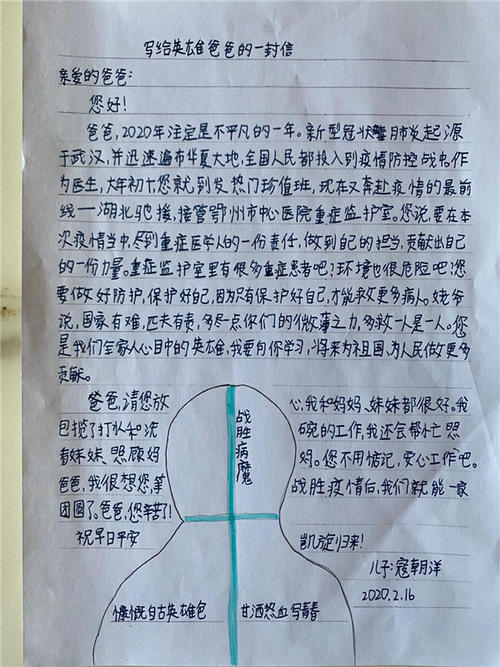 写给英雄爸爸的一封信
亲爱的爸爸:
您好!
爸爸,2020年注定是不平凡的一年。新型冠状肺炎起源
于武汉,并迅速遍布华夏大地,全国人民都投入到疫情防控战中,作
为医生,大年初七您就到发热门诊值班,现在又奔赴疫情的最前
线——湖北驰援,接管鄂州市中心医院重症监护室。您说,要在本
次疫情当中,尽到重症医学人的一份责任,做到自己的担当,贡献出自己
的一份力量。重症监护室里有很多重症患者吧?环境也很危险吧?您
要做好防护,保护好自己,因为只有保护好自己,才能救更多病人。姥爷
说,国家有难,匹夫有责,多尽点你们的微薄之力,多救一人是一人。您
是我们全家人心目中的英雄,我要向你学习,将来为祖国,为人民做更多
贡献。
爸爸,请您放心,我和妈妈、妹妹都很好。我
包揽了打扫和洗碗的工作,我还会帮忙照
看妹妹、照顾妈妈。您不用惦记,安心工作吧。
爸爸,我很想您,等战胜疫情后,我们就能一家
团圆了。爸爸,您辛苦了!
祝早日平安
凯旋归来!
战胜病魔
儿子:寇朝洋
2020.2.16
慷慨自古英雄色
甘洒热血写青春